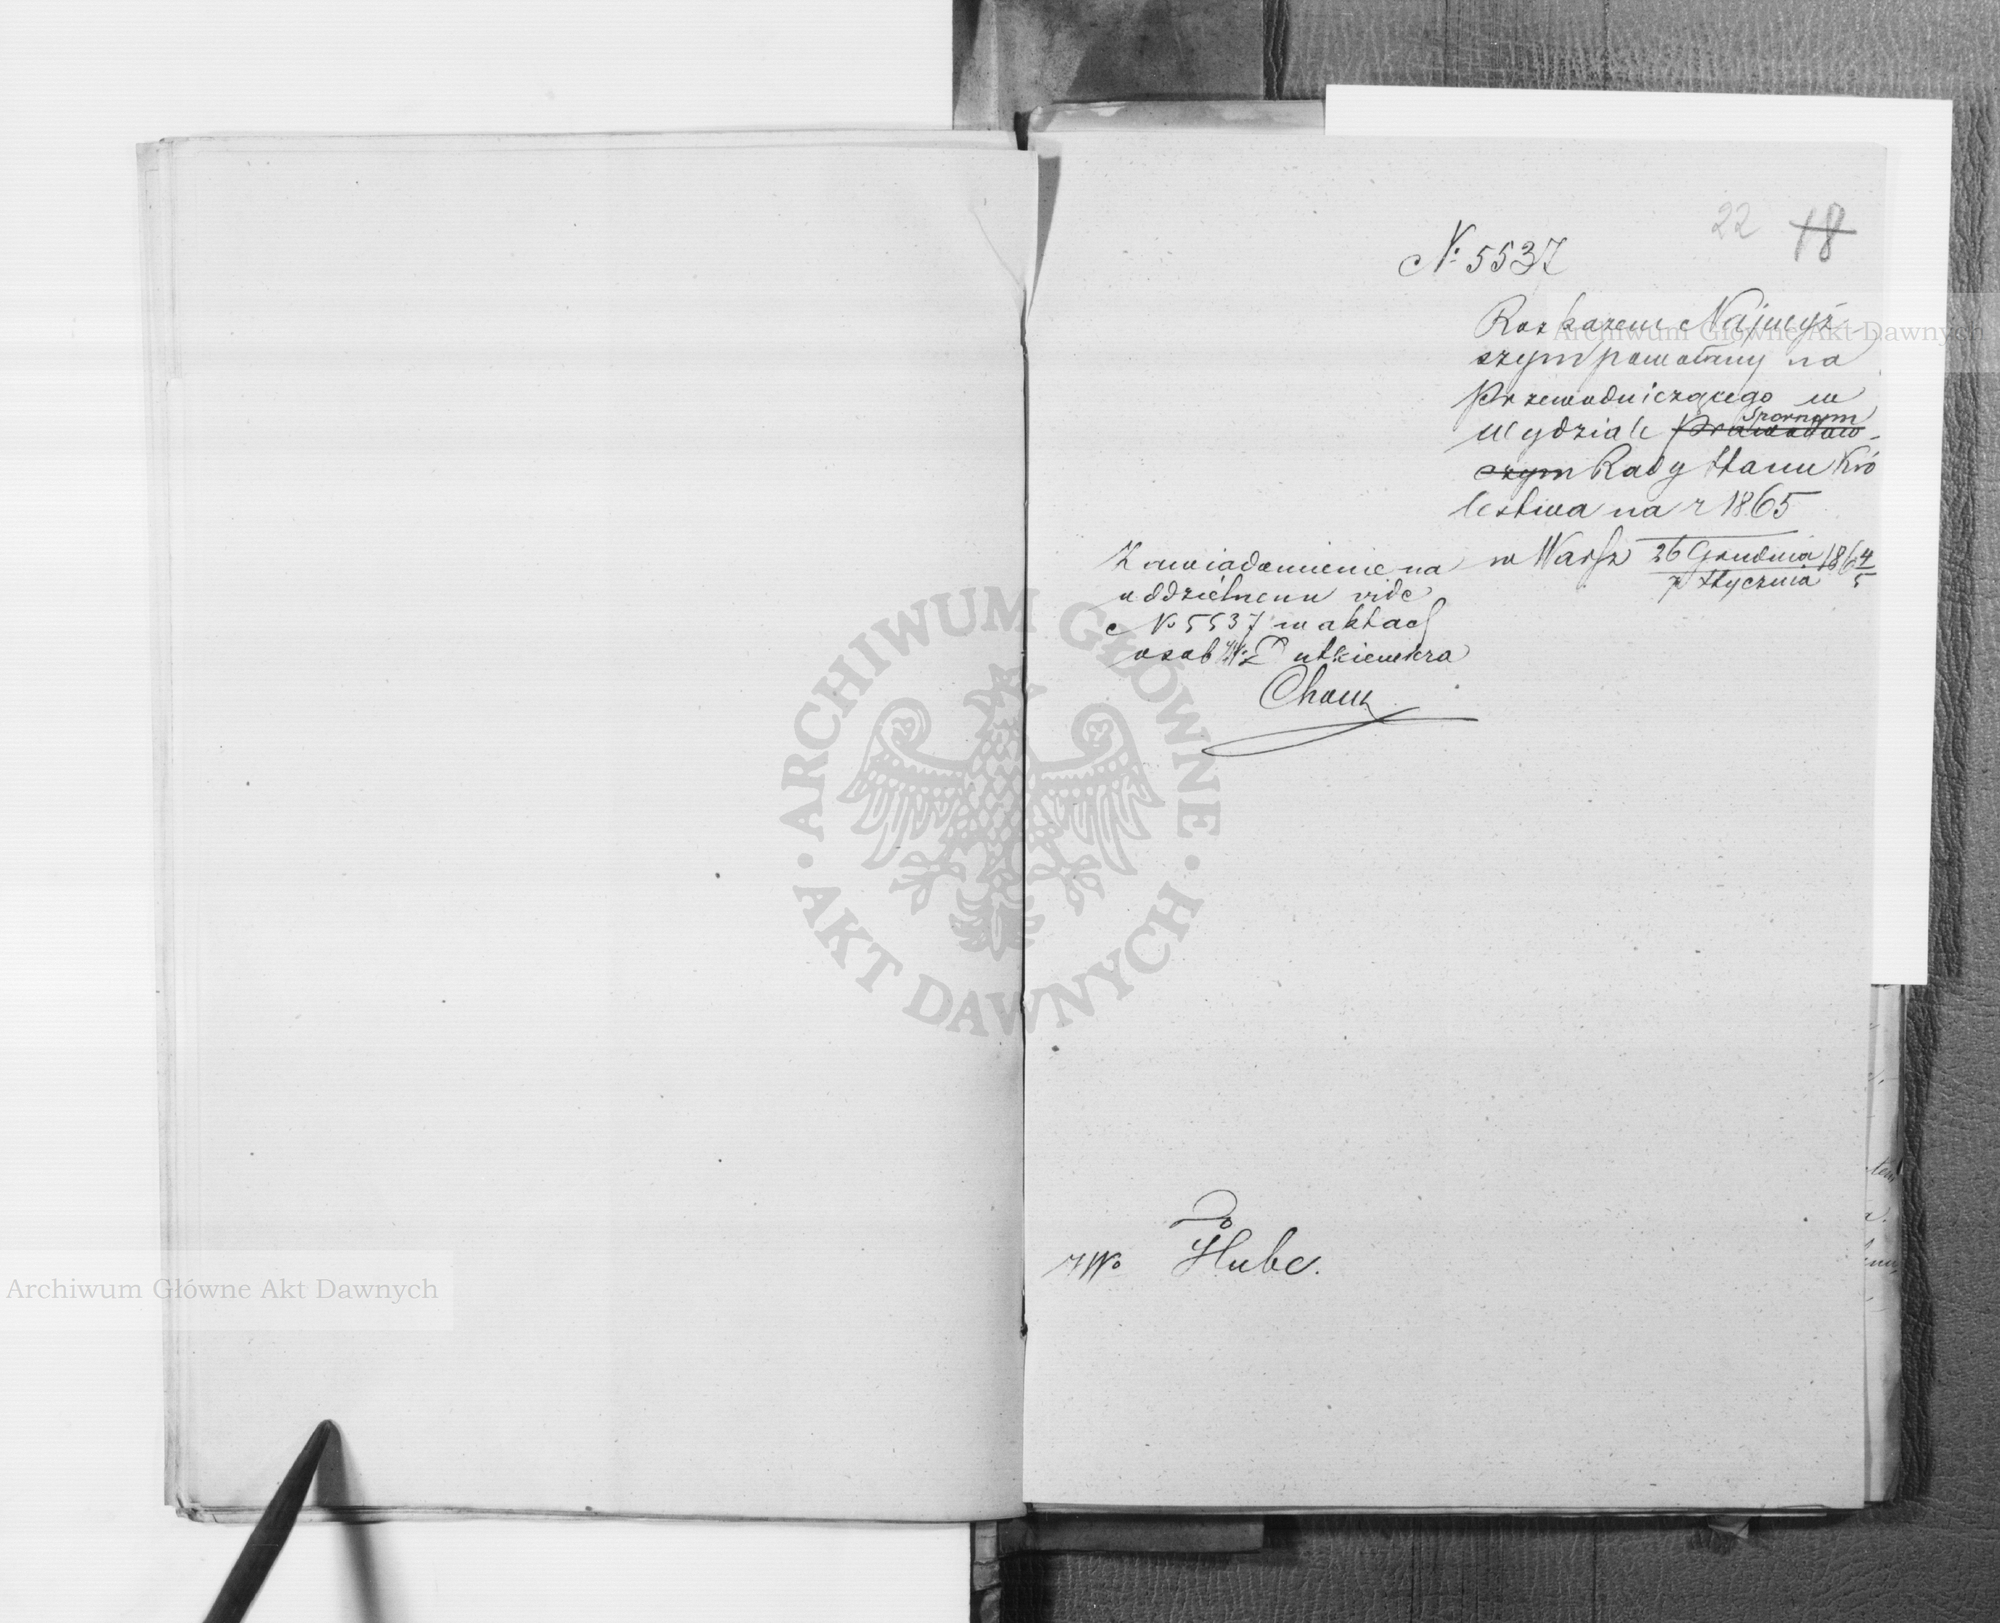 22 18
№ 5537
Rozkazem Najwyż-
szym powołany na
Przewodniczącego w
Spornym
Wydziale Prawodaw-
czym Rady Stanu Kró
lestwa na r 1865
w Warsz 26 Grudnia 1864
7 Stycznia 5
Zawiadomienie na
oddzielnem vide
№ 5537 w aktach
osob W: Dutkiewicza
Cham
Do
JWo Hube.
ARCHIWUM GŁÓWNE AKT DAWNYCH
Archiwum Główne Akt Dawnych
Archiwum Główne Akt Dawnych